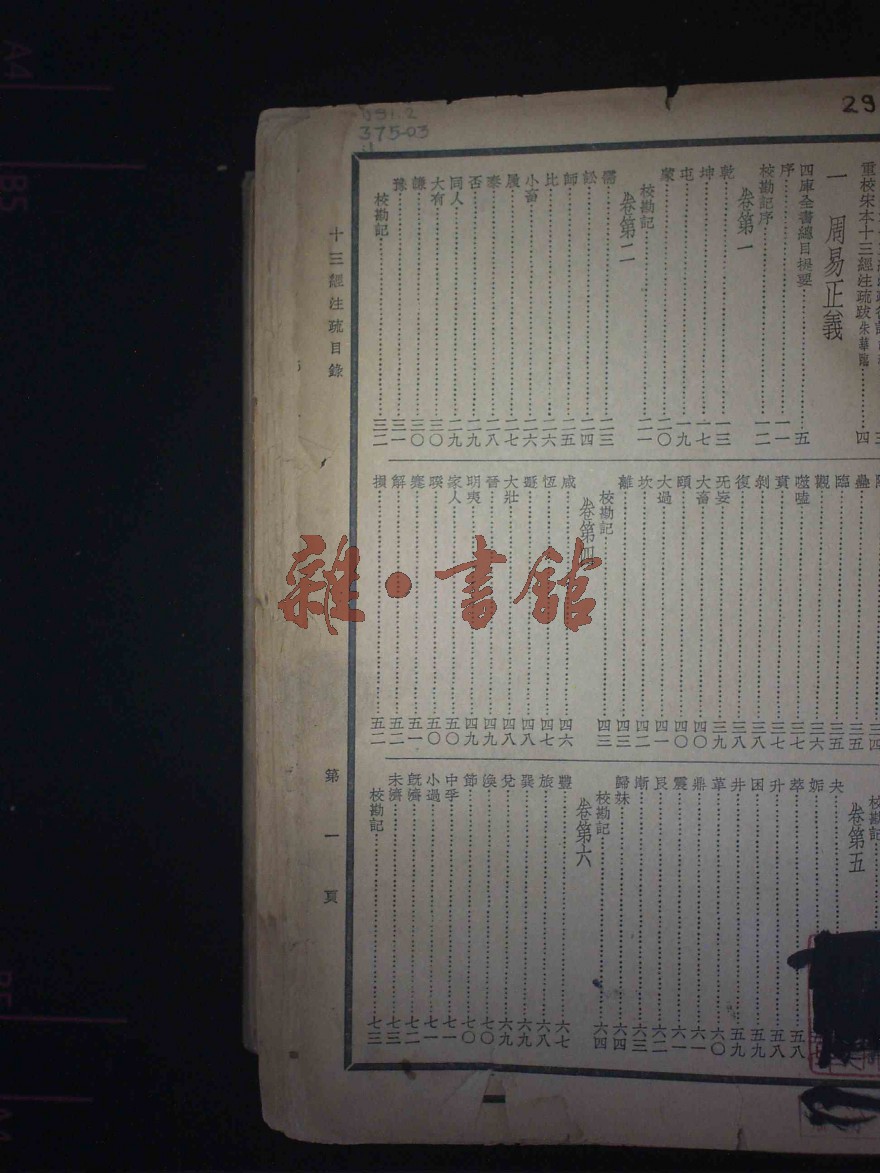 29
091.2
375-03
重校宋本十三經注疏跋 朱華臨……四
一 周易正義
四庫全書總目提要……五
序……一一
校勘記序……一二
卷第一
乾……一三
坤……一七
屯……一九
蒙……二〇
校勘記……二一
卷第二
需……二三
訟……二四
師……二五
比……二六
小畜……二六
履……二七
泰……二八
否……二九
同人……二九
大有……三〇
謙……三〇
豫……三一
校勘記……三二
三四
蠱……三五
臨……三五
觀……三六
噬嗑……三七
賁……三七
剝……三八
復……三八
无妄……三九
大畜……四〇
頤……四〇
大過……四一
坎……四二
離……四三
校勘記……四三
卷第四
咸……四六
恆……四七
遯……四八
大壯……四八
晉……四九
明夷……四九
家人……五〇
睽……五〇
蹇……五一
解……五二
損……五二
校勘記
卷第五
夬
姤
萃……五八
升……五八
困……五九
井……五九
革……六〇
鼎……六一
震……六一
艮……六二
漸……六三
歸妹……六四
校勘記……六四
卷第六
豐……六七
旅……六八
巽……六九
兌……六九
渙……七〇
節……七〇
中孚……七一
小過……七一
既濟……七二
未濟……七三
校勘記……七三
十三經注疏目錄
第一頁
雜·書館
A4
B5